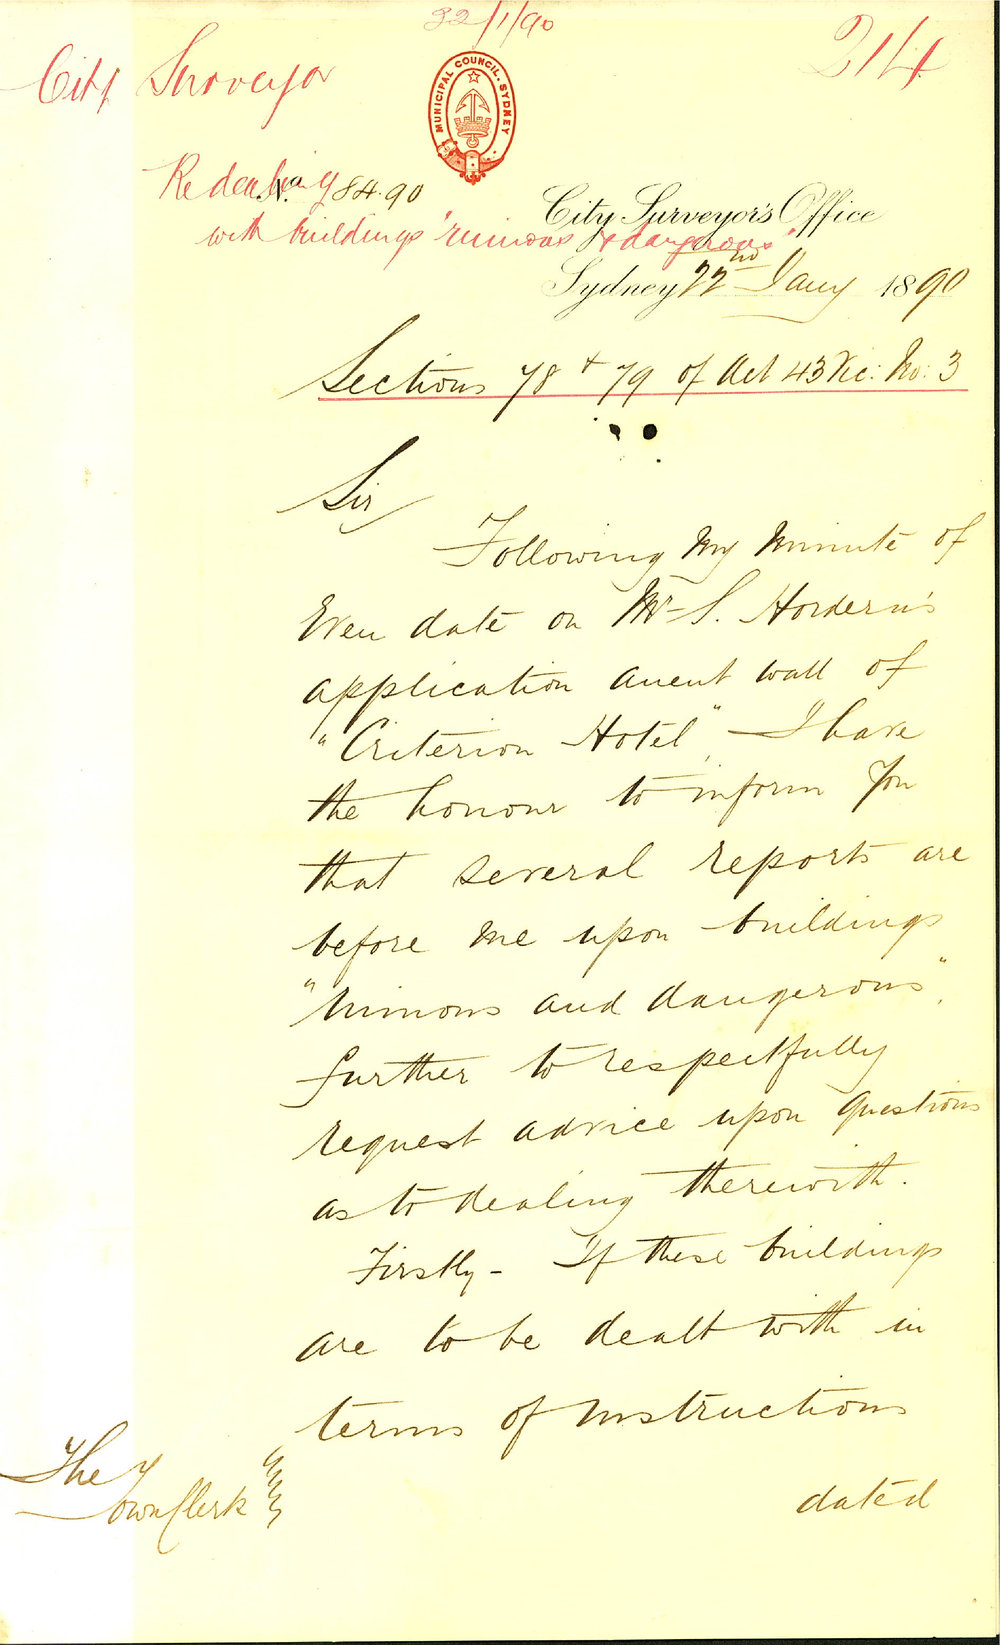 22/1/90
214
City Surveyor
MUNICIPAL COUNCIL. SYDNEY
Re dealing
with buildings "ruinous & dangerous"
No. 84.90
City Surveyor's Office
Sydney 22nd Jany 1890
Sections 78 & 79 of Act 43 Vic: No: 3
Sir
Following my minute of
Even date on Mr S. Hordern's
application anent wall of
"Criterion Hotel" - I have
the honour to inform You
that several reports are
before me upon buildings
"ruinous and dangerous".
further to respectfully
request advice upon questions
as to dealing therewith.
Firstly - If these buildings
are to be dealt with in
terms of instructions
dated
The
Town Clerk